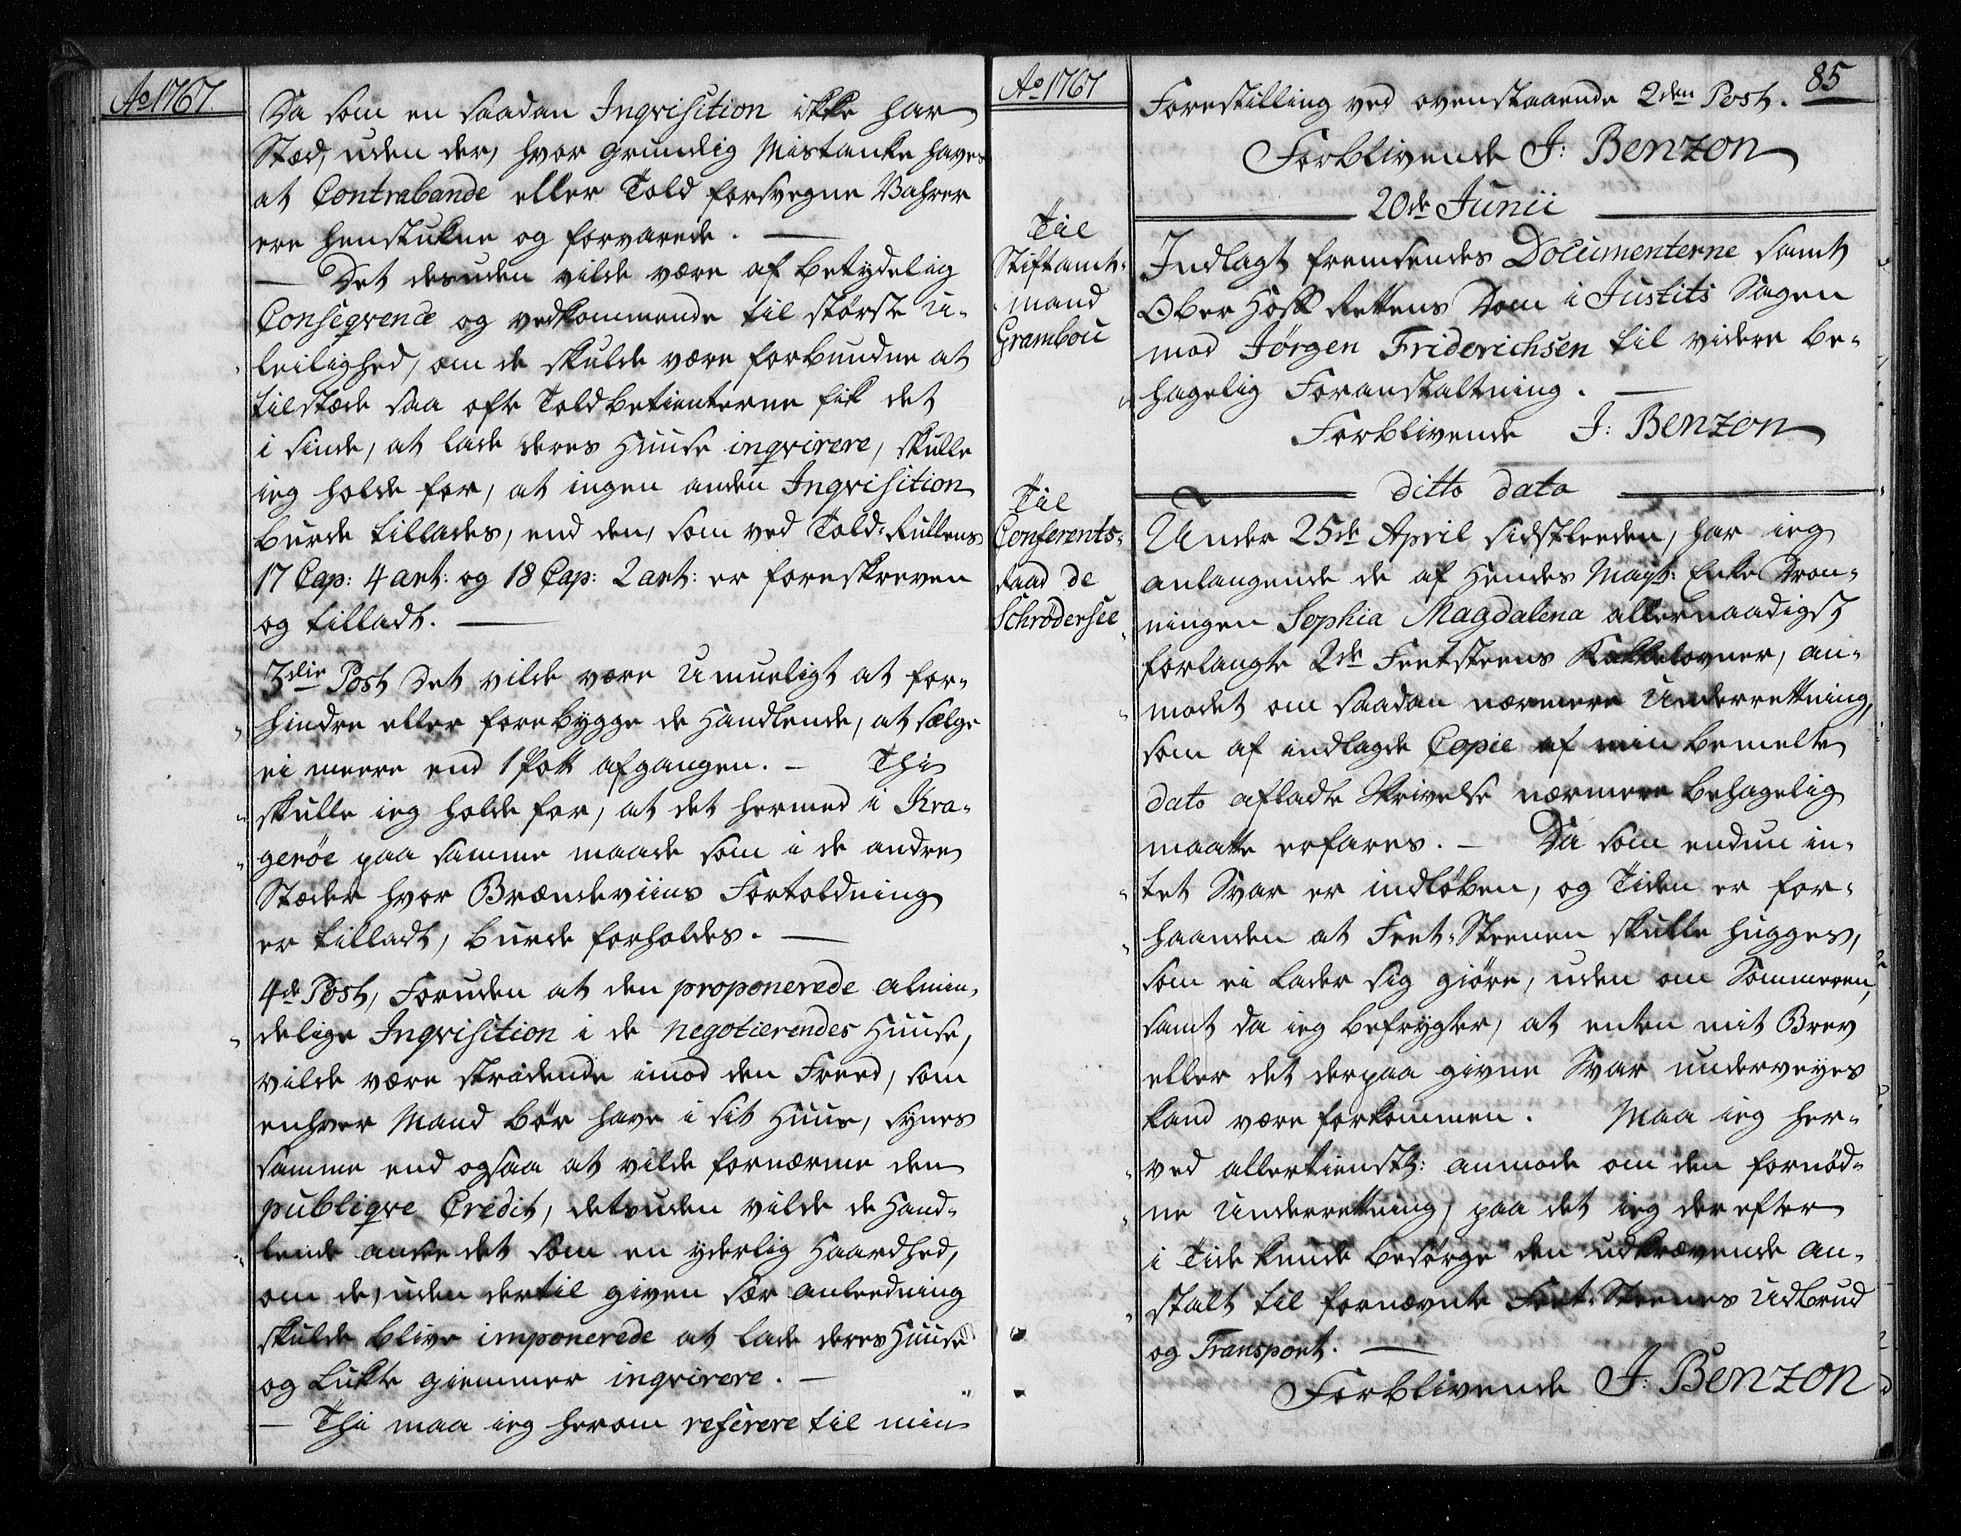 Ao 1767.
Da som en saadan Inqvisition ikke har
Stæd, uden der, hvor grundig Mistanke haves
at Contrabande eller Told forsvegne Vahrer
ere henstukne og forvarede. —
— Det desuden vilde være af betydelig
Conseqvence og vedkommende til største U-
leilighed, om de skulde være forbundne at
tilstæde saa ofte Toldbetienterne fik det
i sinde, at lade deres Huuse inqvirere, skulle
ieg holde for, at ingen anden Inqvisition
burde tillades, end den, som ved Told-Rullens
17 Cap: 4 art: og 18 Cap: 2 art: er foreskreven
og tilladt. —
3die Post Det vilde være Umueligt at for-
hindre eller forebygge de Handlende, at sælge
ei meere end 1 Pott afgangen. — Thi
skulle ieg holde for, at det hermed i Kra-
gerøe paa samme maade som i de andre
Stæder hvor Brændeviins Fortoldning
er tilladt, burde forholdes. —
4de Post, Foruden at den proponerede almin-
delige Inqvisition i de negotierendes Huuse,
vilde være stridende imod den Freed, som
enhver Mand bør have i sit Huus, synes
samme end ogsaa at vilde fornærme den
publiqve Credit, desuden vilde de Hand-
lende ansee det som en yderlig Haardhed,
om de, uden dertil given sær anleedning
skulde blive imponerede at lade deres Huuse
og Lukte giemmer inqvirere. —
— Thi maa ieg herom referere til min
Ao 1767
85
Forestilling ved ovenstaaende 2den Post.
Forblivende J: Benzon
20de Junii
Til
Stiftamt-
mand
Grambou
Indlagt fremsendes Documenterne samt
Ober Hoff Rettens Dom i Justits Sagen
mod Jørgen Friderichsen til videre be-
hagelig Foranstaltning. —
Forblivende J: Benzon
ditto dato
Til
Conferents-
raad de
Schrødersee
Under 25de April sidstleeden, har ieg
anlangende de af Hendes Mayt: Enke Dron-
ningen Sophia Magdalena allernaadigst
forlangte 2de Feetsteens Kakkelovner, an-
modet om saadan nærmere Underrettning,
som af indlagde Copie af min bemelte
dato afladte Skrivelse nærmere behagelig
maatte erfares. — Da som endnu in-
tet Svar er indløben, og Tiden er for-
haanden at Feet-Steenen skulle hugges,
som ei lader sig giøre, uden om Sommeren,
samt da ieg befrygter, at enten mit Brev
eller det derpaa givne Svar underveyes
kand være forkommen. Maa ieg her-
ved allertienstl: anmode om den fornød-
ne Underrettning, paa det ieg derefter
i Tide kunde besørge den udkrævende an-
stalt til fornævnte Feet-Steenes Udbrud
og Transport. —
Forblivende J: Benzon